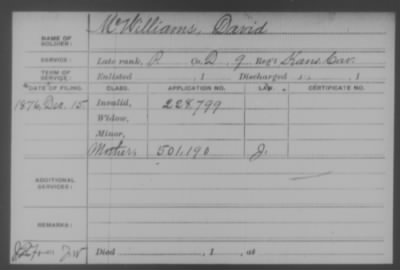 NAME OF SOLDIER: McWilliams, David
SERVICE: Late rank, P Co. D, 9 Reg't Kans. Cav.
TERM OF SERVICE: Enlisted , 1 Discharged , 1
DATE OF FILING. CLASS. APPLICATION NO. LAW. CERTIFICATE NO.
1876, Dec. 15 Invalid, 228,799
Widow,
Minor,
Mother, 501,190 J.
ADDITIONAL SERVICES:
REMARKS:
Died , 1 , at